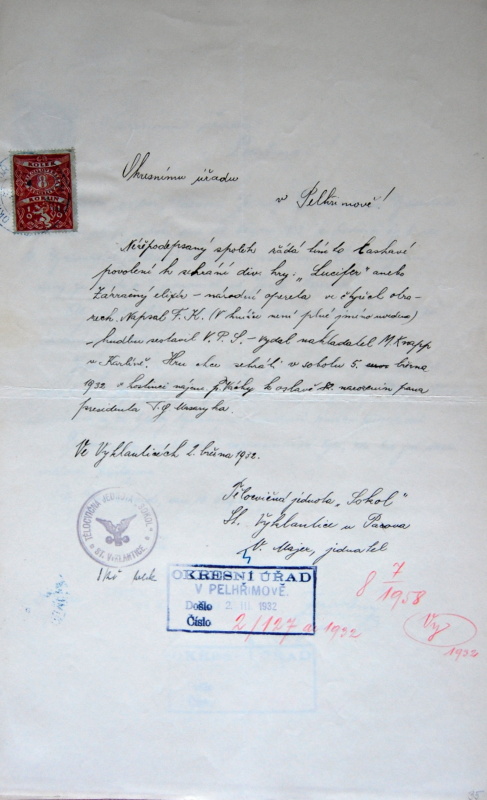 KOLEK
KORUN
Okresnímu úřadu
v Pelhřimově!
Nížepodepsaný spolek žádá tímto laskavé
povolení k sehrání div. hry: „Lucifer" aneb
Zázračný elixír - národní opereta o čtyřech obra-
zech. Napsal F. K. (V knížce není plné jméno uvedeno)
- hudbu sestavil V. P. S. - vydal nakladatel M. Knapp
v Karlíně. Hru chce sehráti v sobotu 5. března
1932 v hostinci k oslavě narozenin pana
presidenta T. G Masaryka.
Ve Vyklanticích 2. března 1932.
Tělocvičná jednota „Sokol"
St. Vyklantice u Pacova
V. Majer, jednatel
TĚLOCVIČNÁ JEDNOTA „SOKOL"
ST. VYKLANTICE
kolek
OKRESNÍ ÚŘAD
V PELHŘIMOVĚ.
Došlo 2. III. 1932
Číslo 2/127 1932
8 7/1958
1932
35